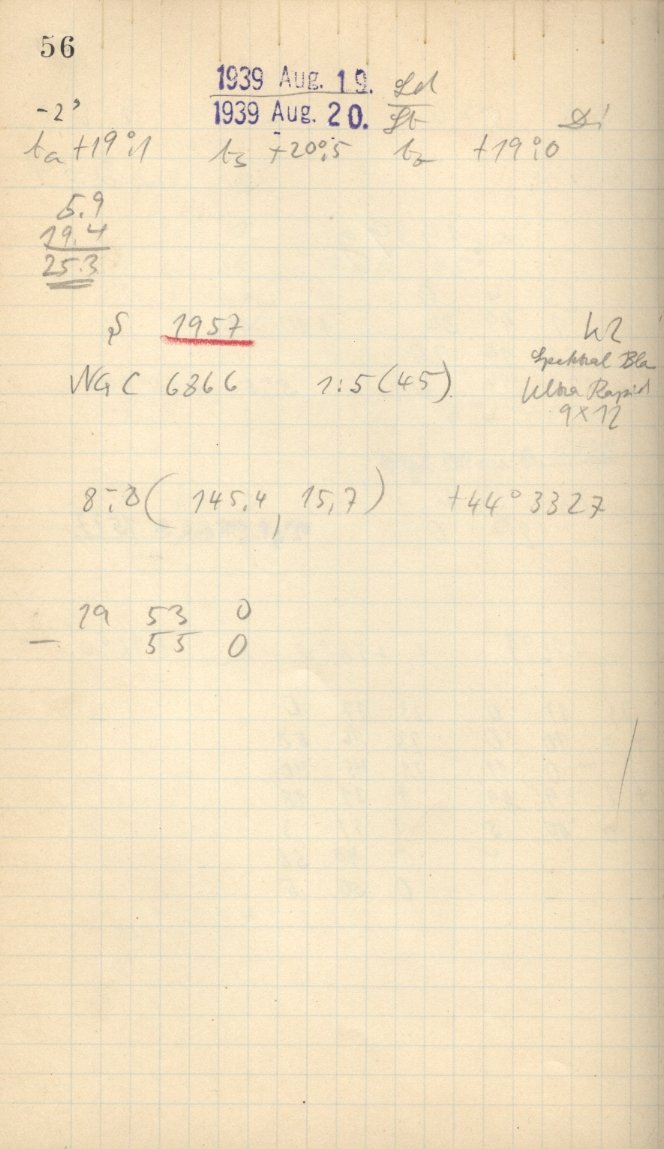 56
1939 Aug. 19. Sd
1939 Aug. 20. St
-2
ta +19°,1 ts +20°,5 t2 +19°,0
5.9
19.4
25.3
S 1957
NGC 6866 1:5 (45)
Spektral Bla
Ultra Rapid
9×12
8,8 ( 145.4, 15,7 ) +44° 3327
19 53 0
— 55 0